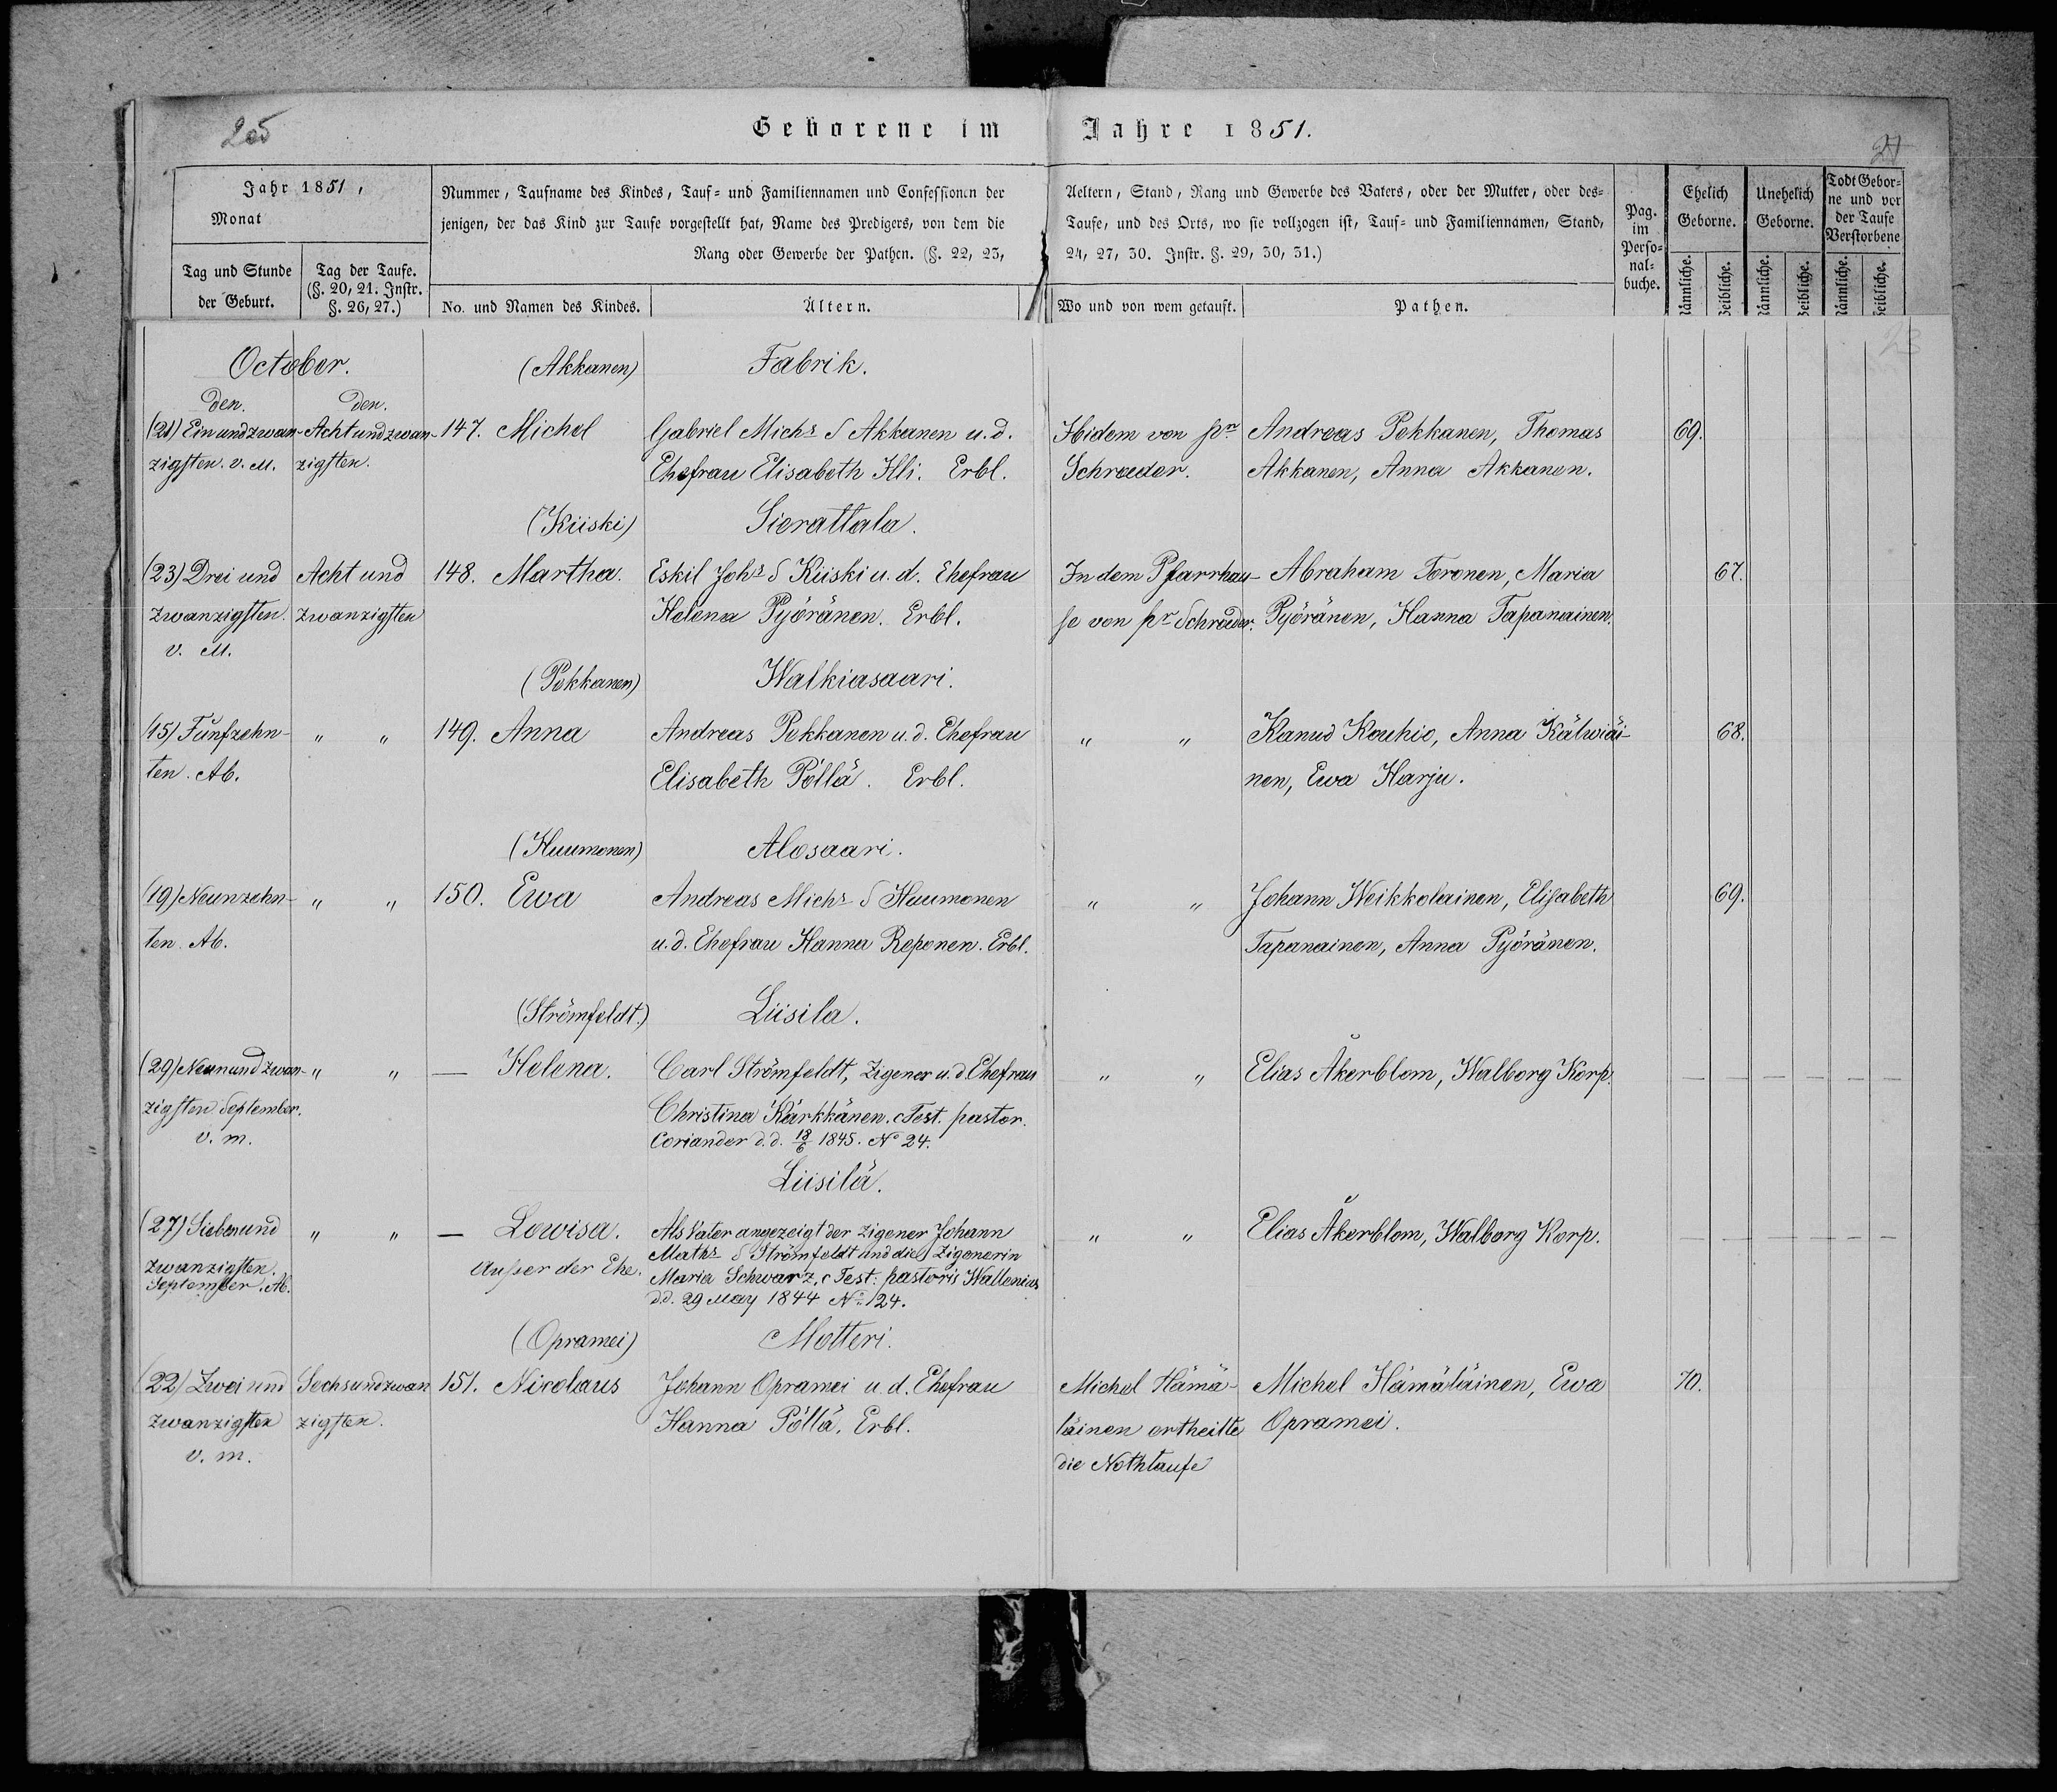 205
Geborene im Jahre 1851.
21
Jahr 1851,
Monat
Tag und Stunde der Geburt.
Tag der Taufe. (§. 20, 21. Instr. §. 26, 27.)
Nummer, Taufname des Kindes, Tauf= und Familiennamen und Confessionen der Aeltern, Stand, Rang und Gewerbe des Vaters, oder der Mutter, oder des=
jenigen, der das Kind zur Taufe vorgestellt hat, Name des Predigers, von dem die Taufe, und des Orts, wo sie vollzogen ist, Tauf= und Familiennamen, Stand,
Rang oder Gewerbe der Pathen. (§. 22, 23, 24, 27, 30. Instr. §. 29, 30, 31.)
No. und Namen des Kindes.
Ältern.
Wo und von wem getauft.
Pathen.
Pag. im Perso=nal=buche.
Ehelich Geborne.
Unehelich Geborne.
Todt Gebor=ne und vor der Taufe Verstorbene
Männliche. Weibliche. Männliche. Weibliche. Männliche. Weibliche.
23
October. (Akkanen) Fabrik.
den. den.
(21) Ein und zwan- Acht und zwan- 147. Michel Gabriel Michs S Akkanen u. d. Ibidem von pr Andreas Pekkanen, Thomas 69.
zigsten. v. M. zigsten. Ehefrau Elisabeth Illi. Erbl. Schroeder. Akkanen, Anna Akkanen.
(Kiiski) Sierattala.
(23) Drei und Acht und 148. Martha. Eskil Johs S Kiiski u. d. Ehefrau In dem Pfarrhau- Abraham Toronen, Maria 67.
zwanzigsten. zwanzigsten Helena Pyöränen. Erbl. se von pr Schroeder. Pyöränen, Hanna Tapanainen.
v. M.
(Pekkanen) Walkiasaari.
(15) Fünfzehn- " " 149. Anna Andreas Pekkanen u. d. Ehefrau " " Kanud Kouhio, Anna Kälwiäi- 68.
ten. Ab. Elisabeth Pöllä. Erbl. nen, Ewa Harju.
(Huumonen) Alosaari.
(19) Neunzehn- " " 150. Ewa Andreas Michs S Huumonen " " Johann Weikkolainen, Elisabeth 69.
ten. Ab. u. d. Ehefrau Hanna Reponen. Erbl. Tapanainen, Anna Pyöränen.
(Strömfeldt.) Liisila.
(29) Neun und zwan- " " — Helena. Carl Strömfeldt, Zigener u. d. Ehefrau " " Elias Åkerblom, Walborg Korp. — — — — — —
zigsten September. Christina Kärkkänen. c Test. pastor.
v. m. Coriander d. d. 18/6 1845. No 24.
Liisilä.
(27) Sieben und " " — Lowisa. Als Vater angezeigt der Zigener Johann " " Elias Åkerblom, Walborg Korp. — — — — — —
zwanzigsten. Ausser der Ehe. Maths S Strömfeldt und die Zigenerin
September. Ab. Maria Schwarz, c Test: pastoris Wallenius
d. d. 29 May 1844 No 124.
(Opramei) Motteri.
(22) Zwei und Sechs und zwan 151. Nicolaus Johann Opramei u. d. Ehefrau Michel Hämä- Michel Hämäläinen, Ewa 70.
zwanzigsten zigsten. Hanna Pöllä. Erbl. läinen ertheilte Opramei.
v. m. die Nothtaufe